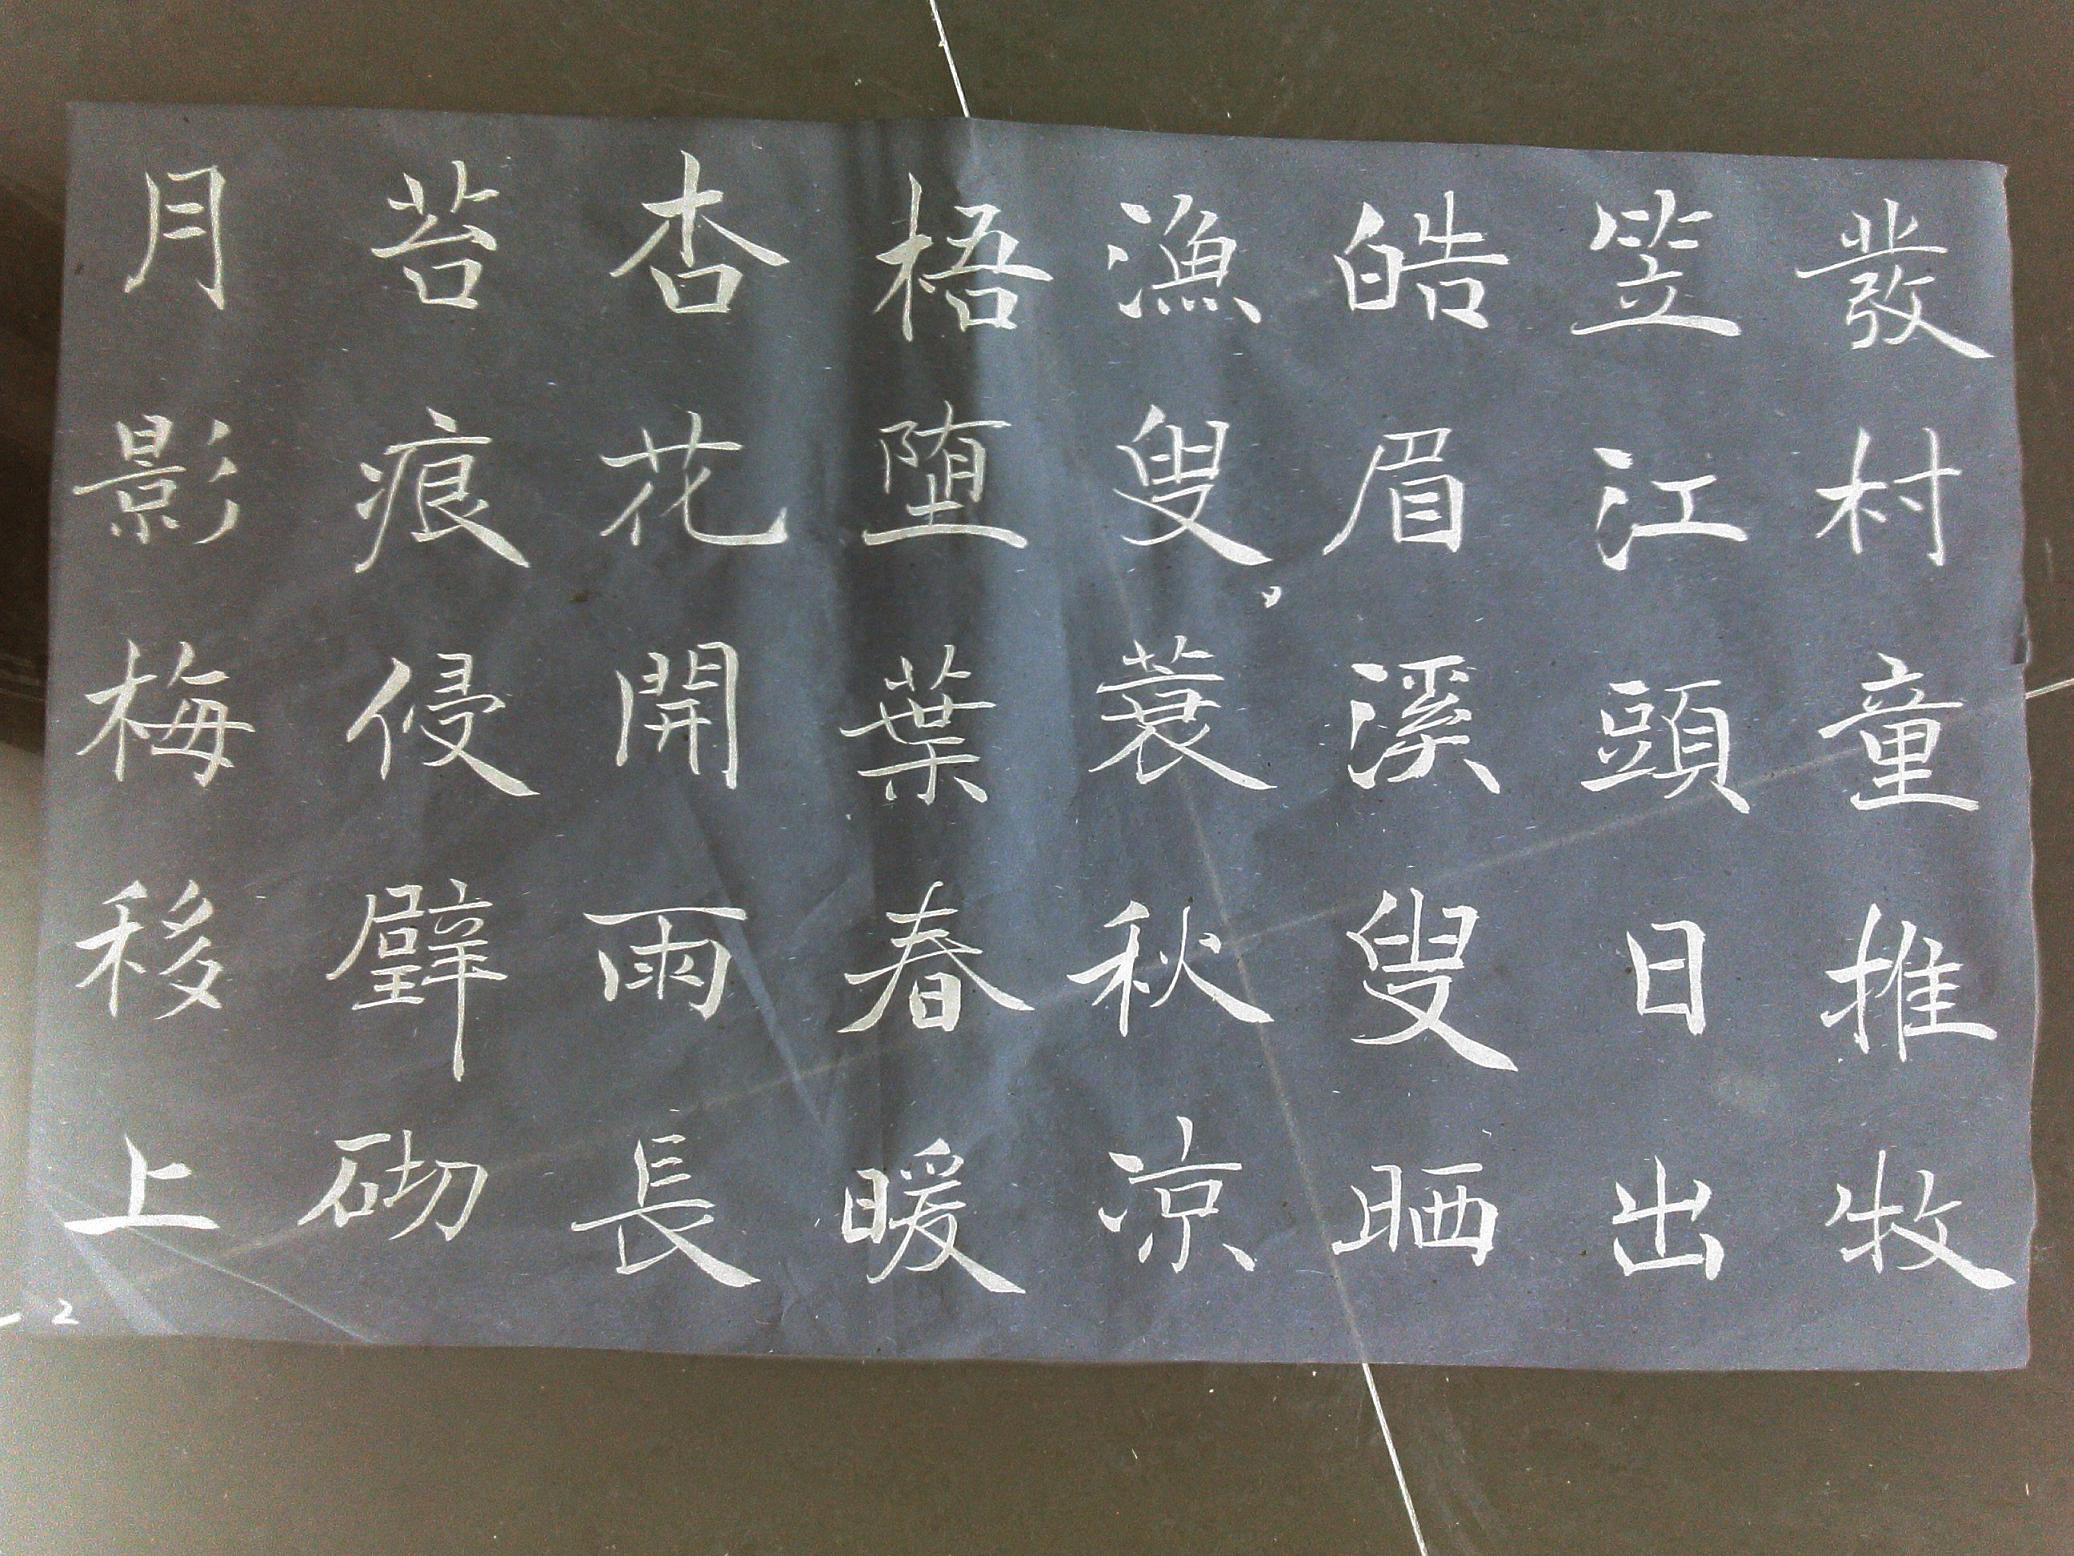 發村童推牧
笠江頭日出
皓眉溪叟晒
漁叟蓑秋凉
梧堕葉春暖
杏花開雨長
苔痕侵壁砌
月影梅移上